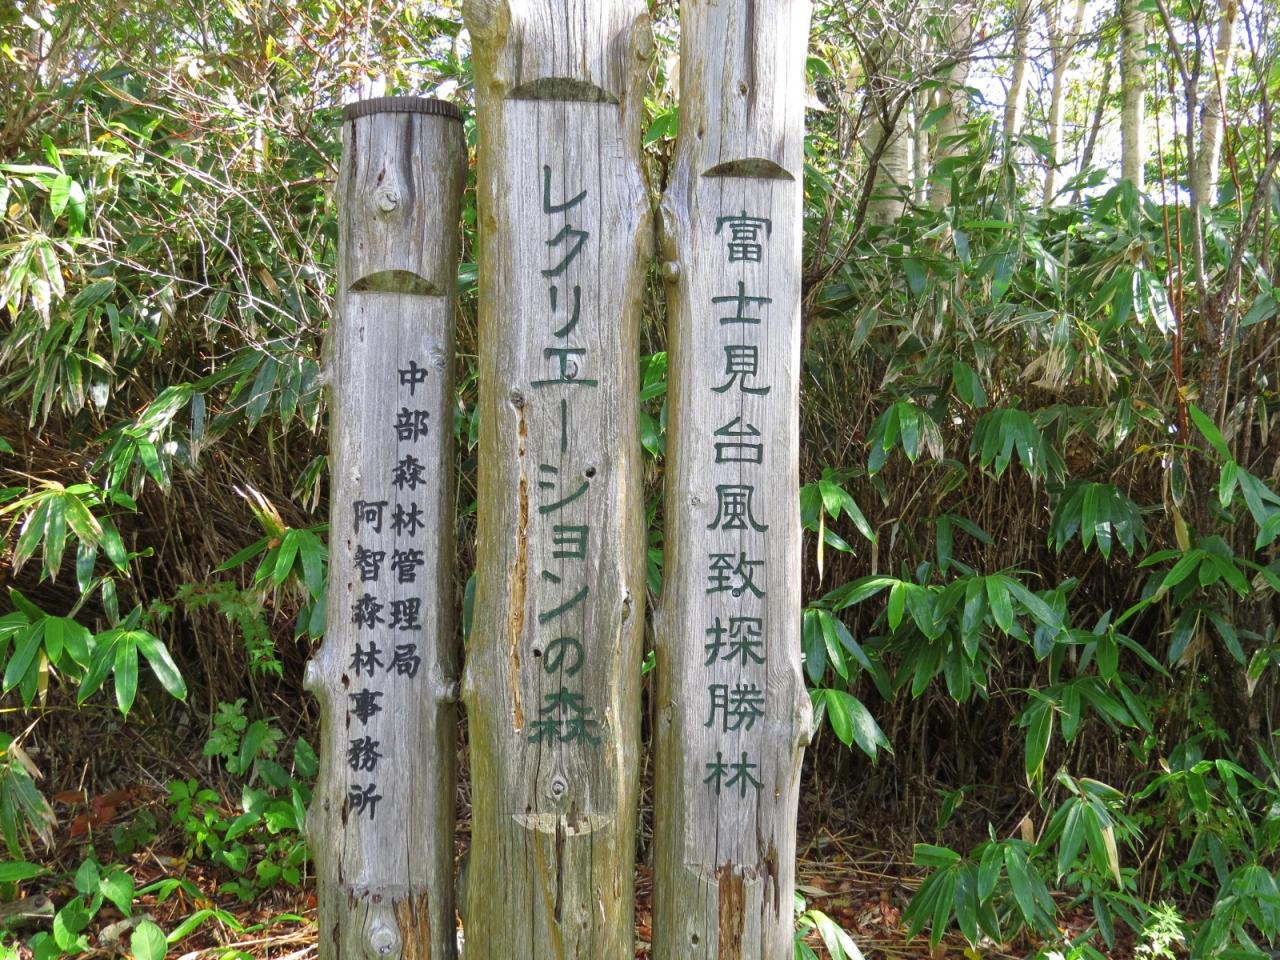 富士見台風致探勝林
レクリエーションの森
中部森林管理局
阿智森林事務所